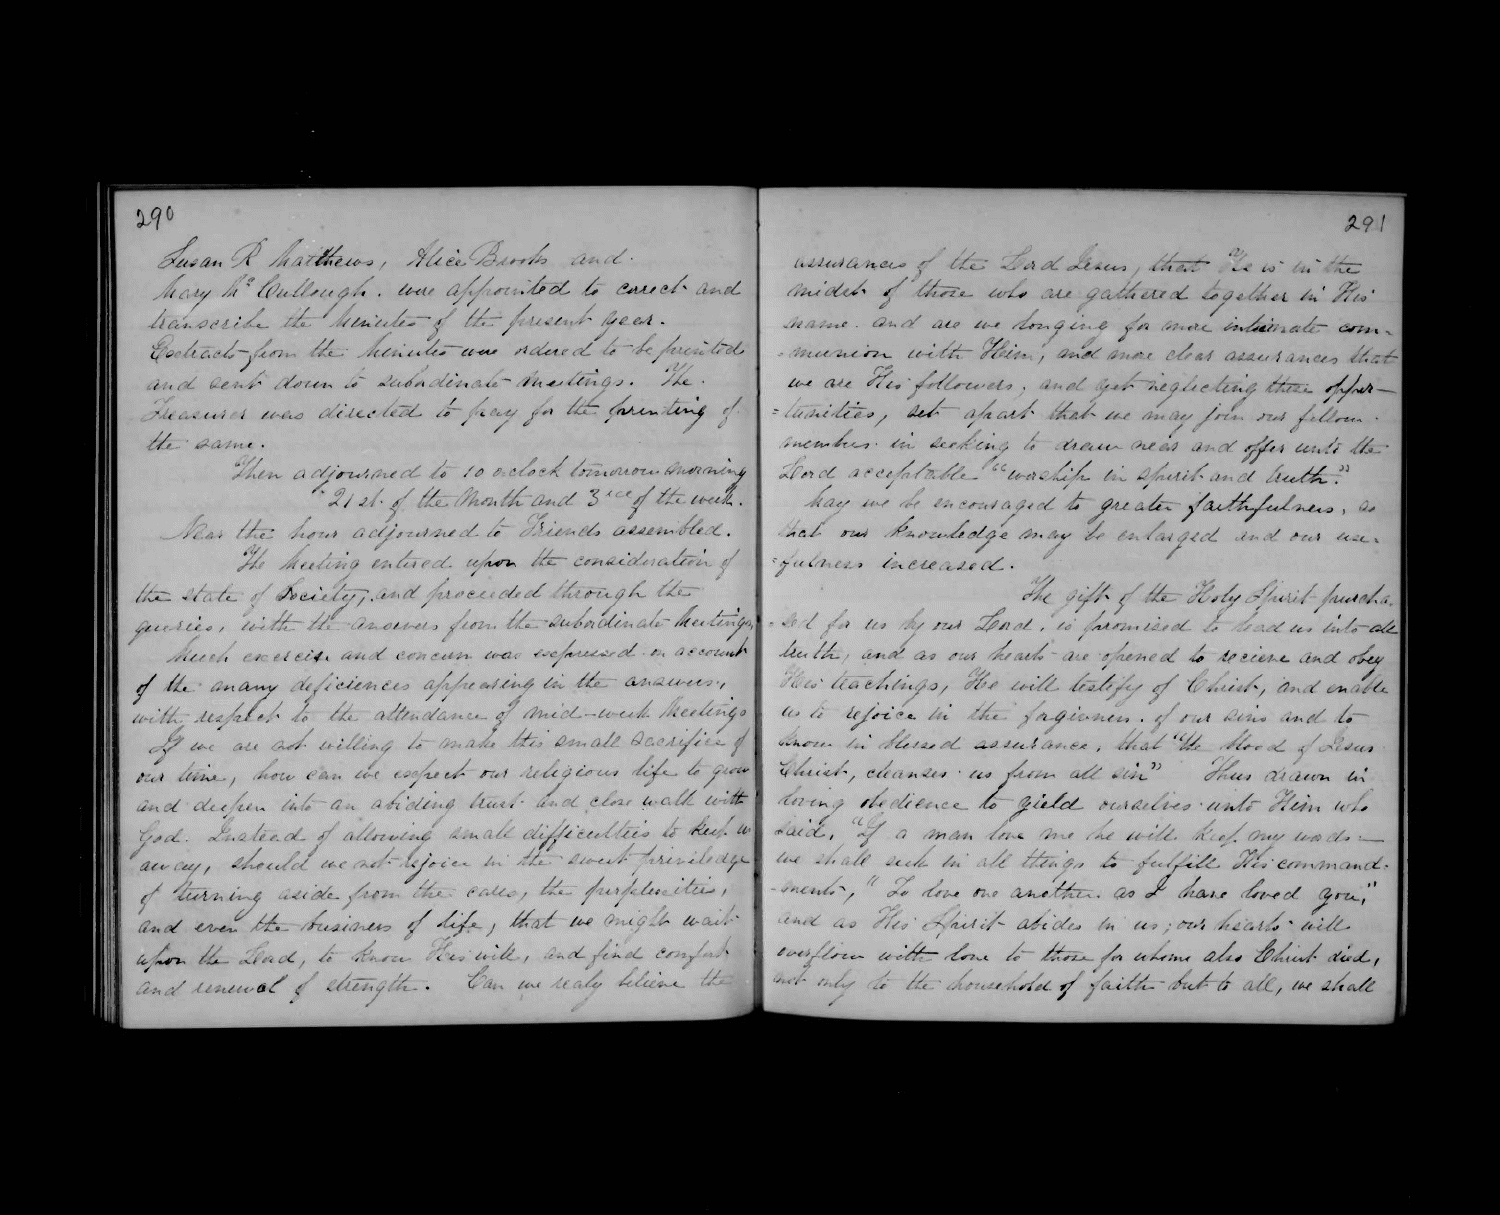 290
Susan R Matthews, Alice Brooks and
Mary McCullough. were appointed to correct and
transcribe the Minutes of the present year.
Extracts from the Minutes were ordered to be printed
and sent down to subordinate Meetings. The
Treasurer was directed to pay for the printing of
the same.
Then adjourned to 10 oclock tomorrow morning
21st. of the Month and 3rd of the week.
Near the hour adjourned to Friends assembled.
The Meeting entered upon the consideration of
the state of Society, and proceeded through the
queries, with the answers from the subordinate Meetings,
Much exercise and concern was expressed on account
of the many deficiences appearing in the answers,
with respect to the attendance of mid-week Meetings
If we are not willing to make this small sacrifice of
our time, how can we expect our religious life to grow
and deepen into an abiding trust and close walk with
God. Instead of allowing small difficulties to keep us
away, should we not rejoice in the sweet priviledge
of turning aside from the cares, the perplexities,
and even the business of life, that we might wait
upon the Lord, to know His will, and find comfort
and renewal of strength. Can we realy believe the
291
assurances of the Lord Jesus, that "He is in the
midst of those who are gathered together in His
name. and are we longing for more intimate com-
-munion with Him, and more clear assurances that
we are His followers, and yet neglecting these oppor-
=tunities, set apart that we may join our fellow
members in seeking to draw near and offer unto the
Lord acceptable "worship in spirit and truth."
May we be encouraged to greater faithfulness, as
that our knowledge may be enlarged and our use-
=fulness increased.
The gift of the Holy Spirit purcha-
-sed for us by our Lord, is promised to lead us into all
truth, and as our hearts are opened to recieve and obey
His teachings, He will testify of Christ, and enable
us to rejoice in the forgivness of our sins and to
know in blessed assurance, that "the blood of Jesus
Christ, cleanses us from all sin" Thus drawn in
loving obedience to yield ourselves unto Him who
said, "If a man love me he will keep my words-
we shall seek in all things to fulfill His command-
-ments, "To love one another as I have loved you,"
and as His Spirit abides in us; our hearts will
overflow with love to those for whom also Christ died,
not only to the household of faith but to all, we shall